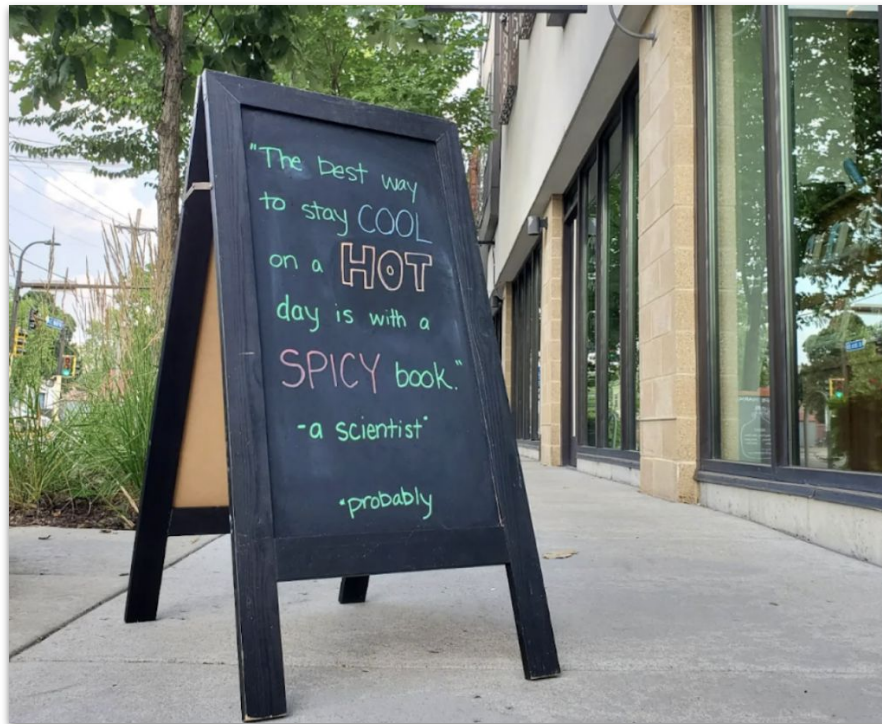 "The best way
to stay COOL
on a HOT
day is with a
SPICY book."
-a scientist*
*probably